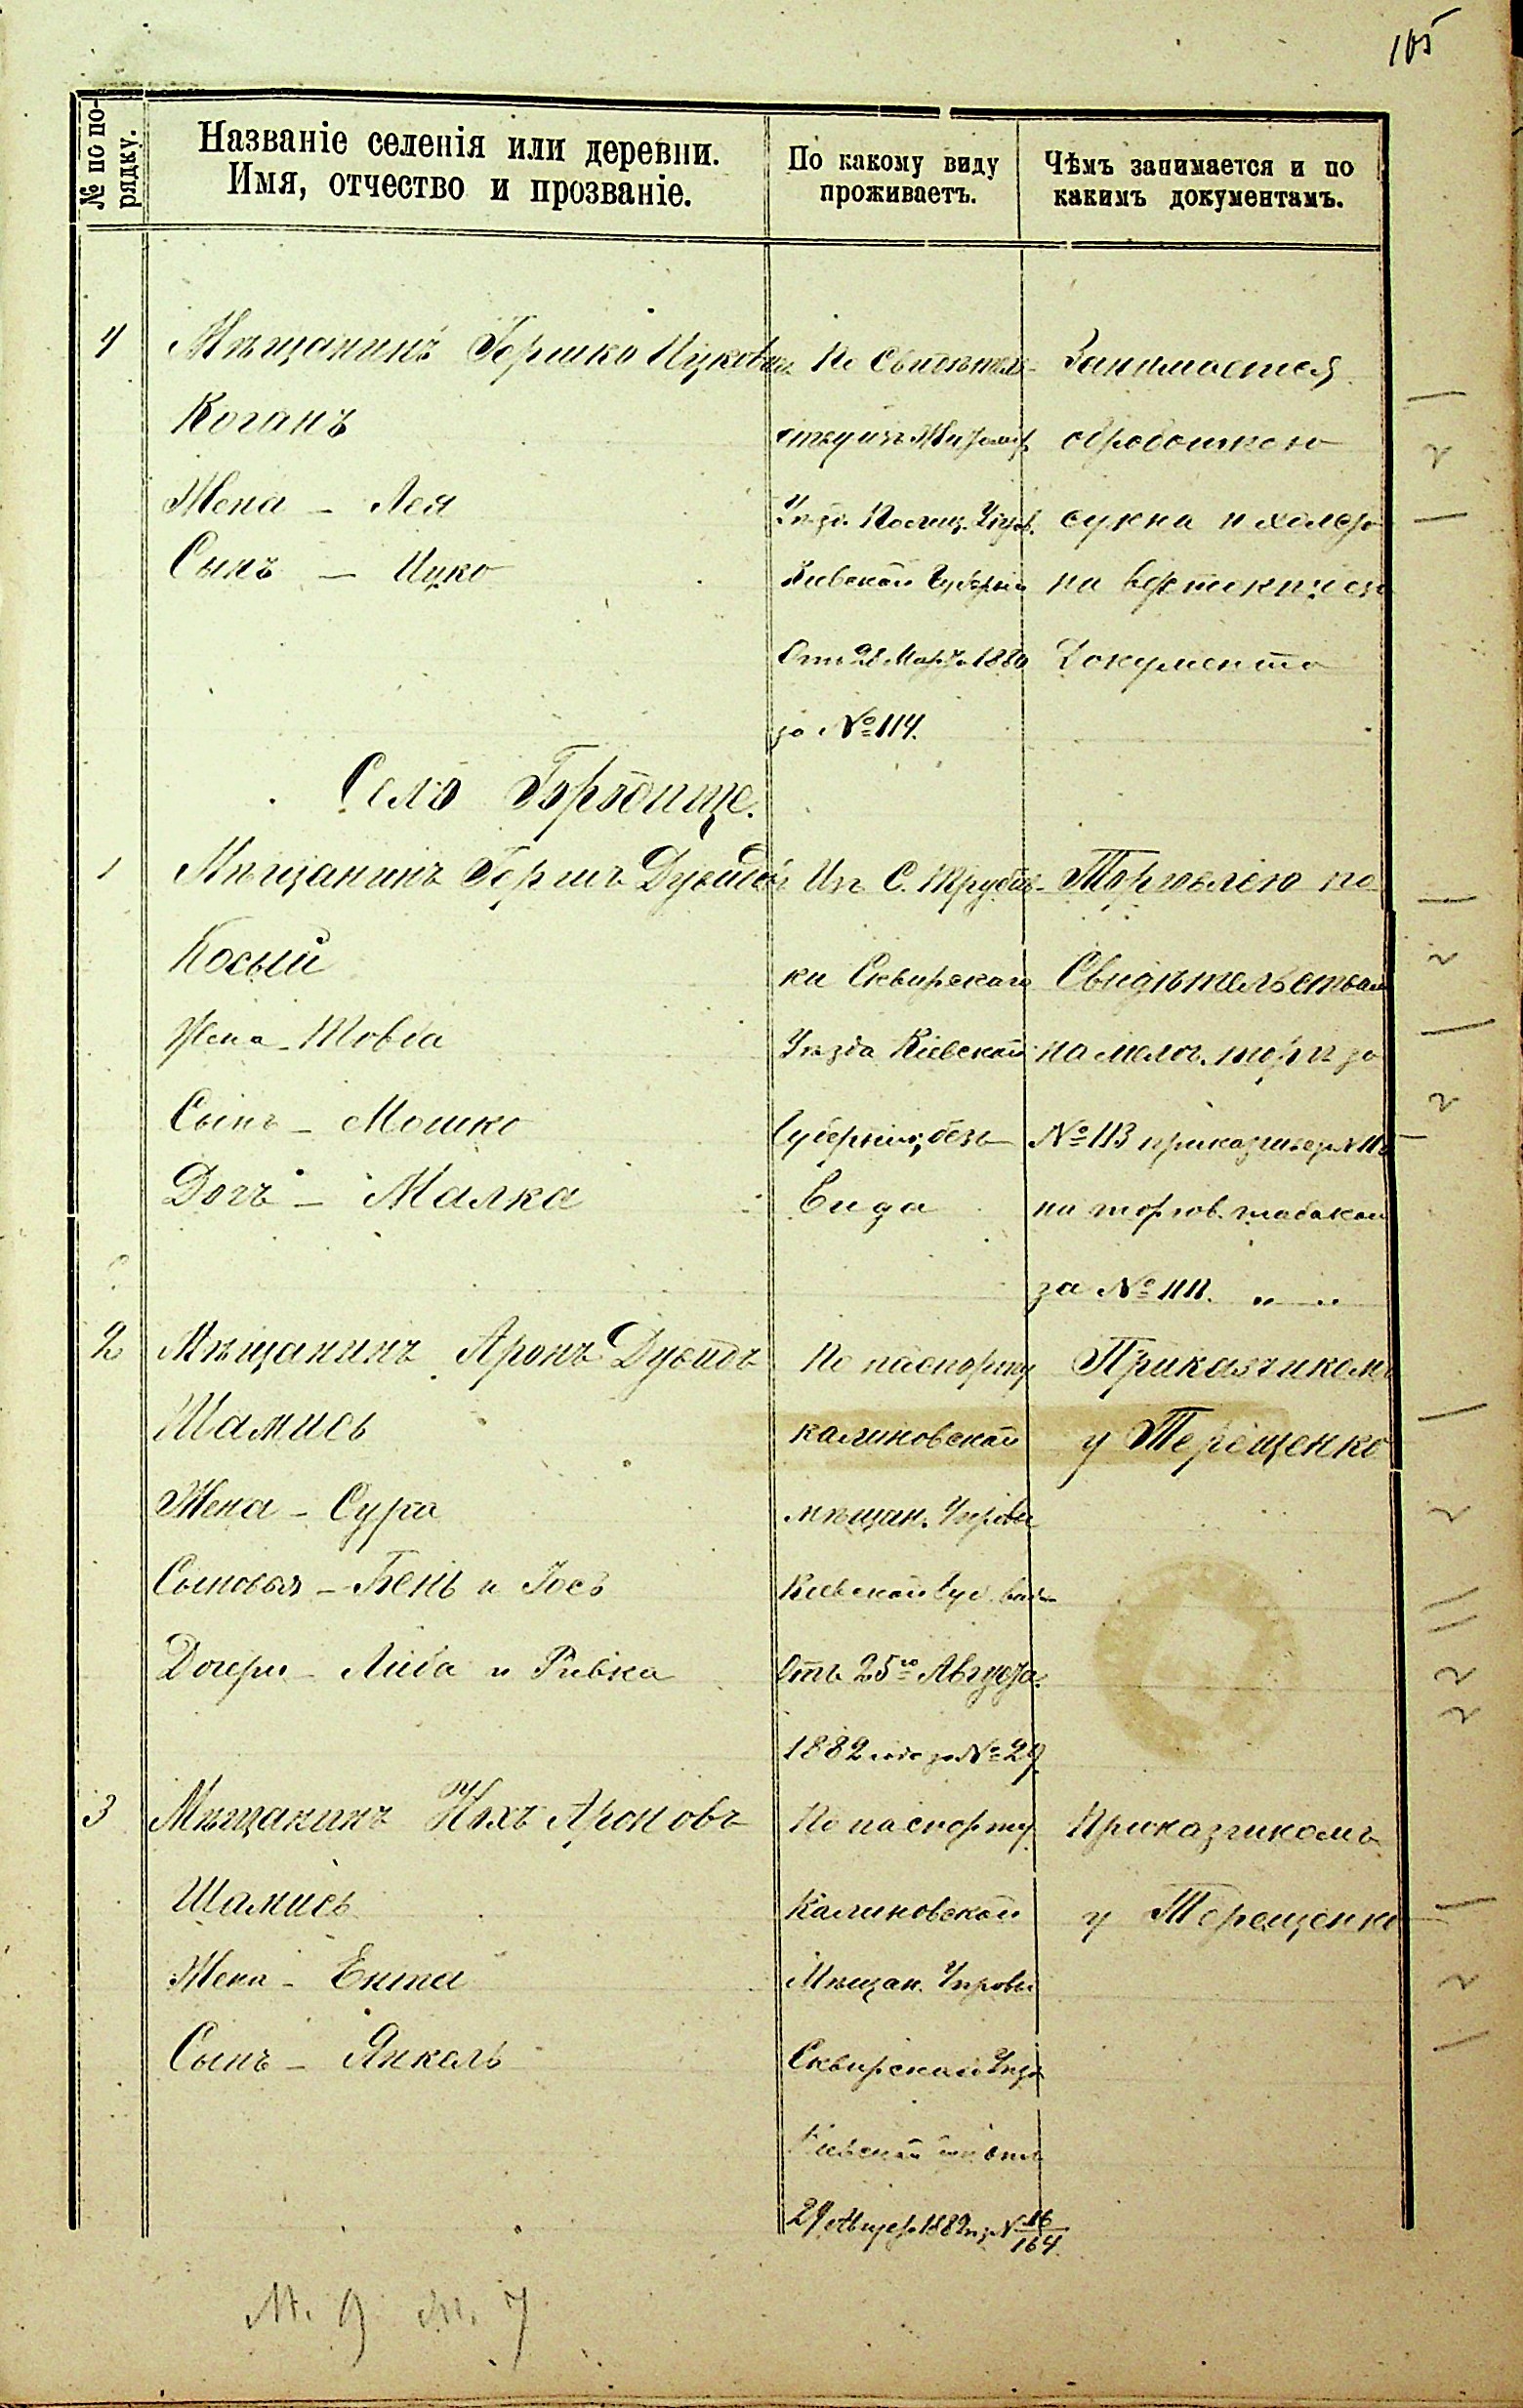 105
№ по по-
рядку.
Названіе селенія или деревни.
Имя, отчество и прозваніе.
По какому виду
проживаетъ.
Чѣмъ занимается и по
какимъ документамъ.
4
Мѣщанинъ Гершко Ицковъ
Коганъ
Жена - Лея
Сынъ - Ицко
По Свидѣтель-
Уѣзд. Полиц. Управ.
Кіевской Губерніи
Отъ 28 Марта 1880
за № 114.
Занимается
сукна и
на
документа
Село Городище.
1
Мѣщанинъ Гершъ Дувидов
Косый
Жена - Товба
Сынъ - Мошко
Дочь - Малка
Изъ С. Трубѣе-
ки Сквирскаго
Уѣзда Кіевской
Губерніи, безъ
Вида
Торговлею по
Свидѣтельствам
на мелоч. торгъ за
№ 113 приказчье за № 115
на торгов. табаком
за № 1111. „ „
2
Мѣщанинъ Аронъ Дувидъ
Шамись
Жена - Сура
Сыновья - Бень и Іось
Дочери - Либа и Ривка
По паспорту
калиновской
мѣщан. Управы
Кіевской Губ.
Отъ 25го Августа
1882 года за № 29
Приказчикомъ
у Терещенко
3
Мѣщанинъ Нухъ Ароновъ
Шамись
Жена - Ента
Сынъ - Янкель
По паспорту
Калиновской
Мѣщан. Управы
Сквирскаго Уѣзд
Кіевской Губ отъ
29 Август 1882 за № 16/164.
Приказчикомъ
у Терещенко
М. 9 Ж. 7